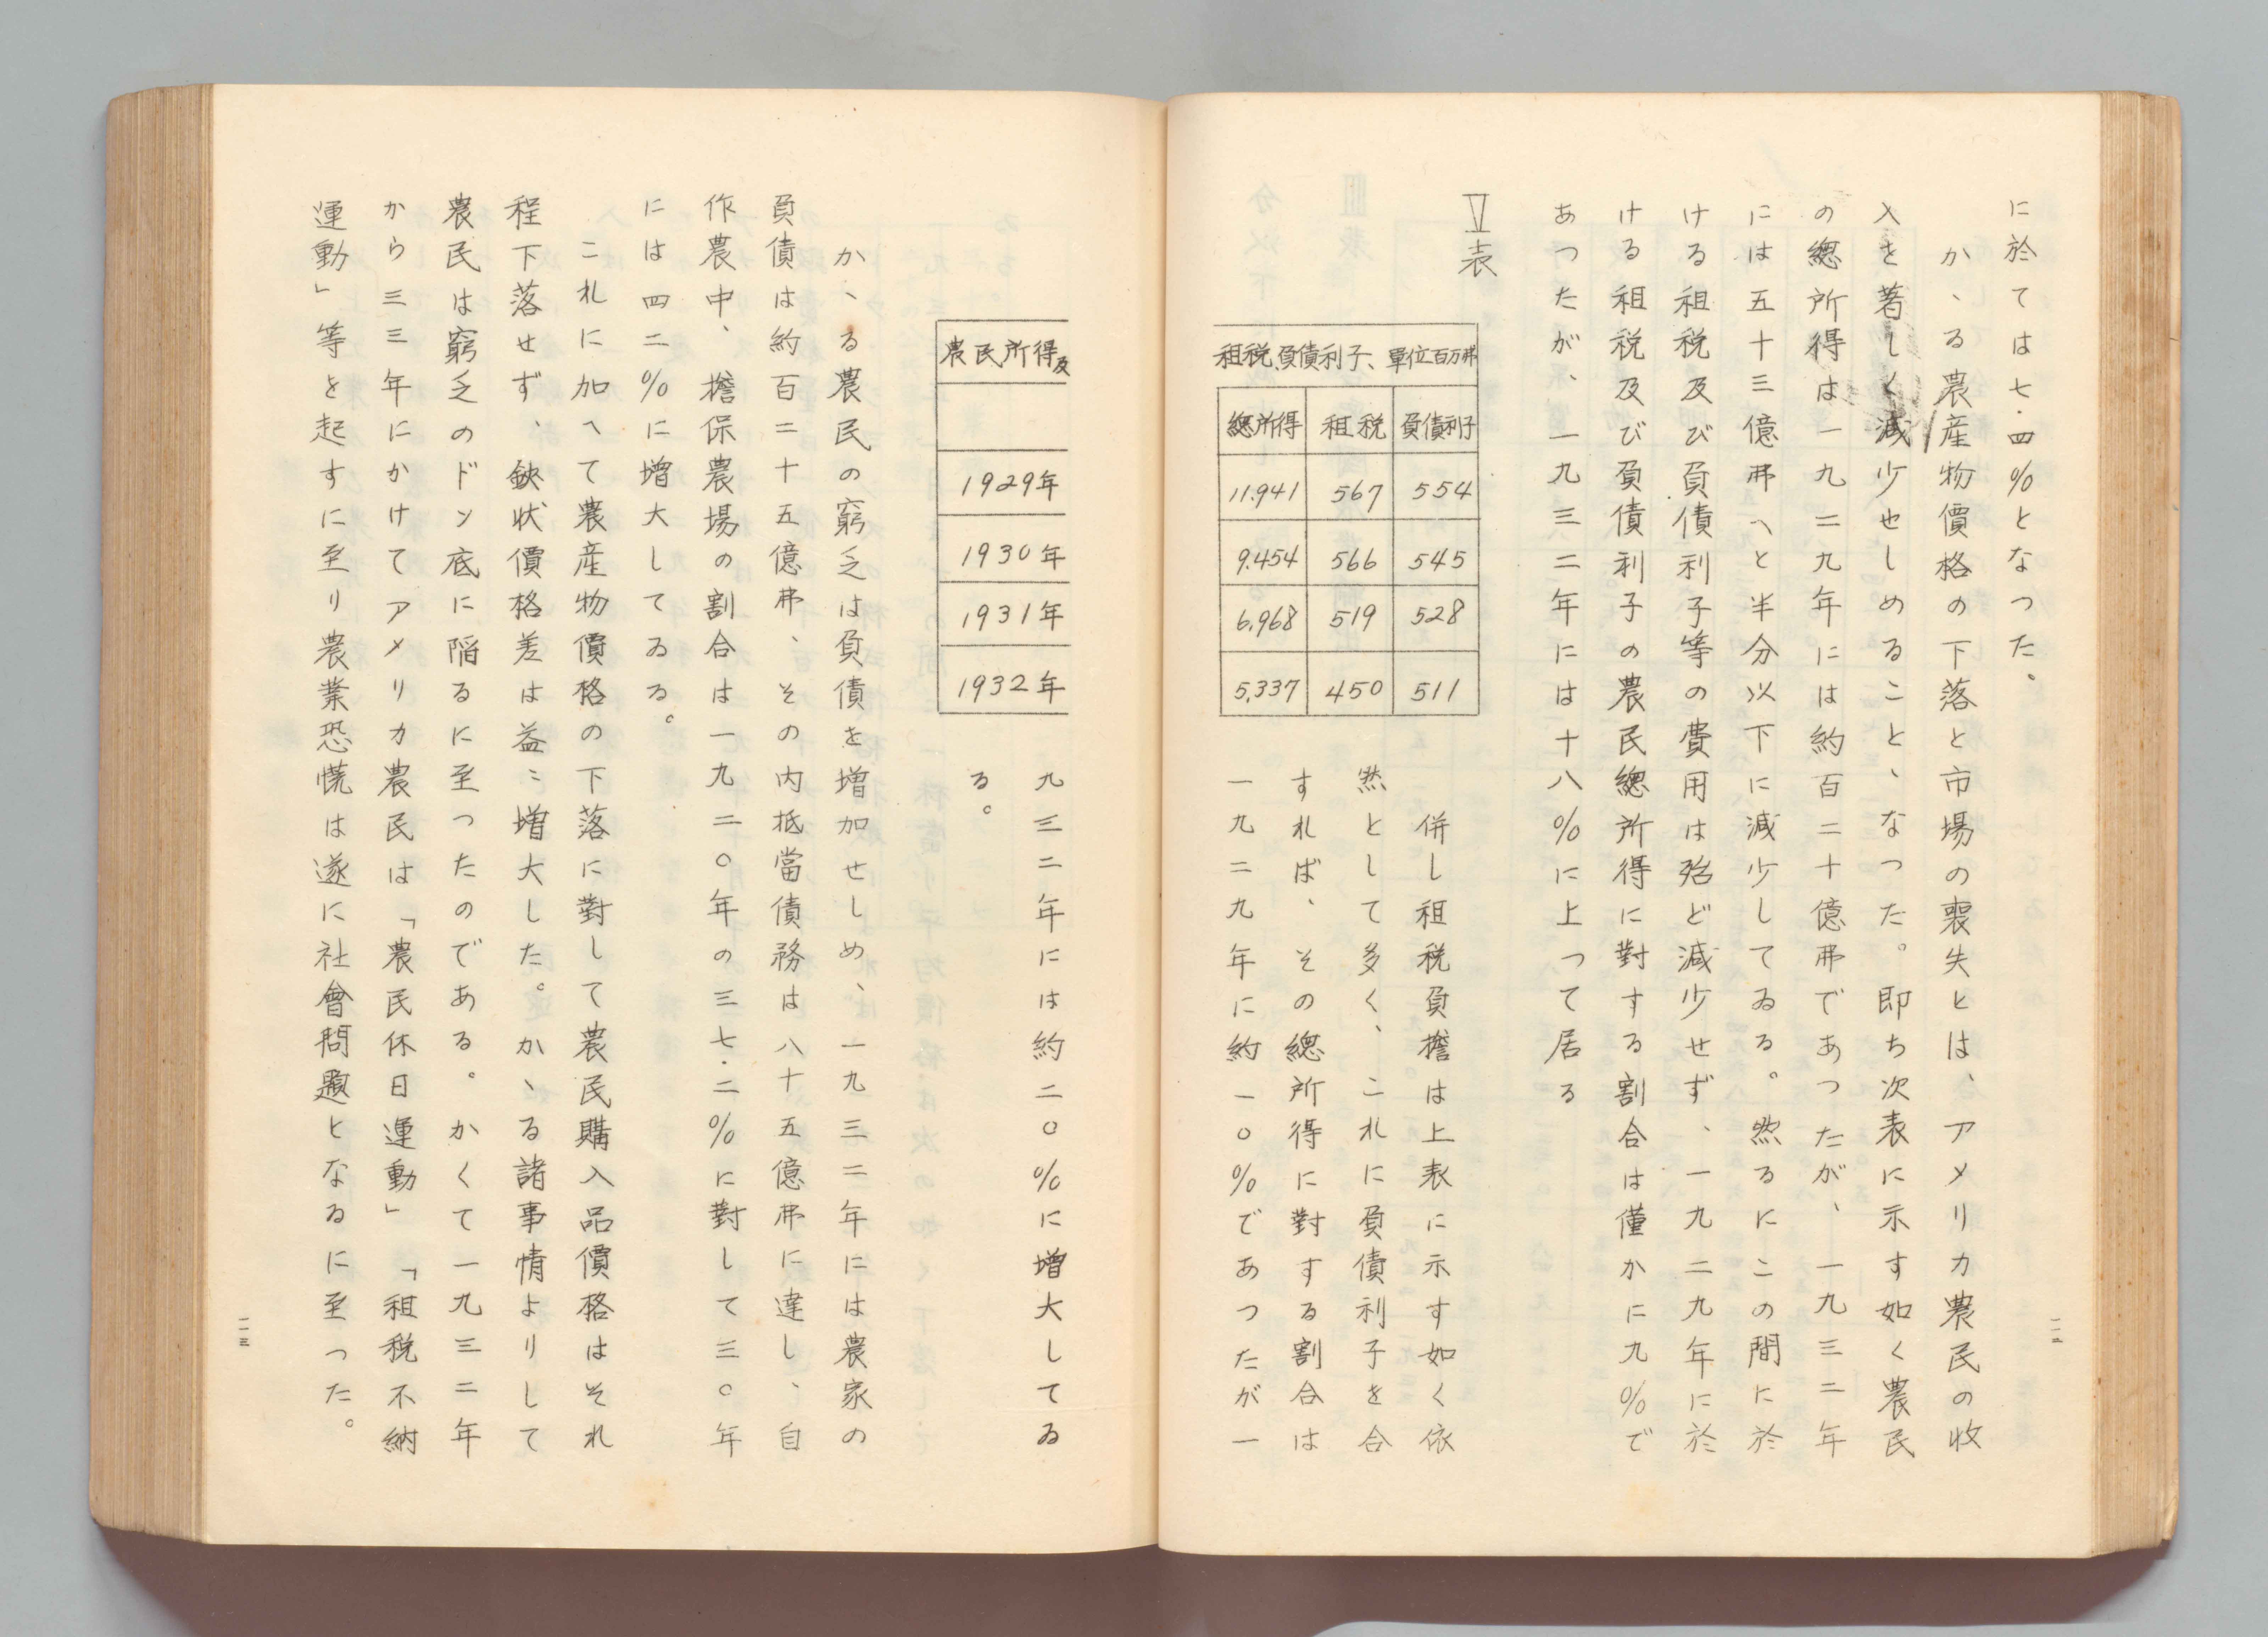 に於ては七・四%となつた。
かゝる農産物價格の下落と市場の喪失とは、アメリカ農民の收
入を著しく減少せしめることゝなつた。卽ち次表に示す如く農民
の總所得は一九二九年には約百二十億弗であつたが、一九三二年
には五十三億弗へと半分以下に減少してゐる。然るにこの間に於
ける租税及び負債利子等の費用は殆ど減少せず、一九二九年に於
ける租税及び負債利子の農民總所得に對する割合は僅かに九%で
あつたが、一九三二年には十八%に上つて居る
Ⅴ表
租税、負債利子、單位百万弗
總所得 租税 負債利子
11.941 567 554
9.454 566 545
6.968 519 528
5.337 450 511
併し租税負擔は上表に示す如く依
然として多く、これに負債利子を合
すれば、その總所得に對する割合は
一九二九年に約一〇%であつたが一
一一二
農民所得及
1929年
1930年
1931年
1932年
九三二年には約二〇%に增大してゐ
る。
かゝる農民の窮乏は負債を增加せしめ、一九三二年には農家の
負債は約百二十五億弗、その内抵當債務は八十五億弗に達し、自
作農中、擔保農場の割合は一九二〇年の三七・二%に對して三〇年
には四二%に增大してゐる。
これに加へて農産物價格の下落に對して農民購入品價格はそれ
程下落せず、鋏狀價格差は益〻增大した。かゝる諸事情よりして
農民は窮乏のドン底に陷るに至つたのである。かくて一九三二年
から三三年にかけてアメリカ農民は「農民休日運動」「租税不納
運動」等を起すに至り農業恐慌は遂に社會問題となるに至つた。
一一三